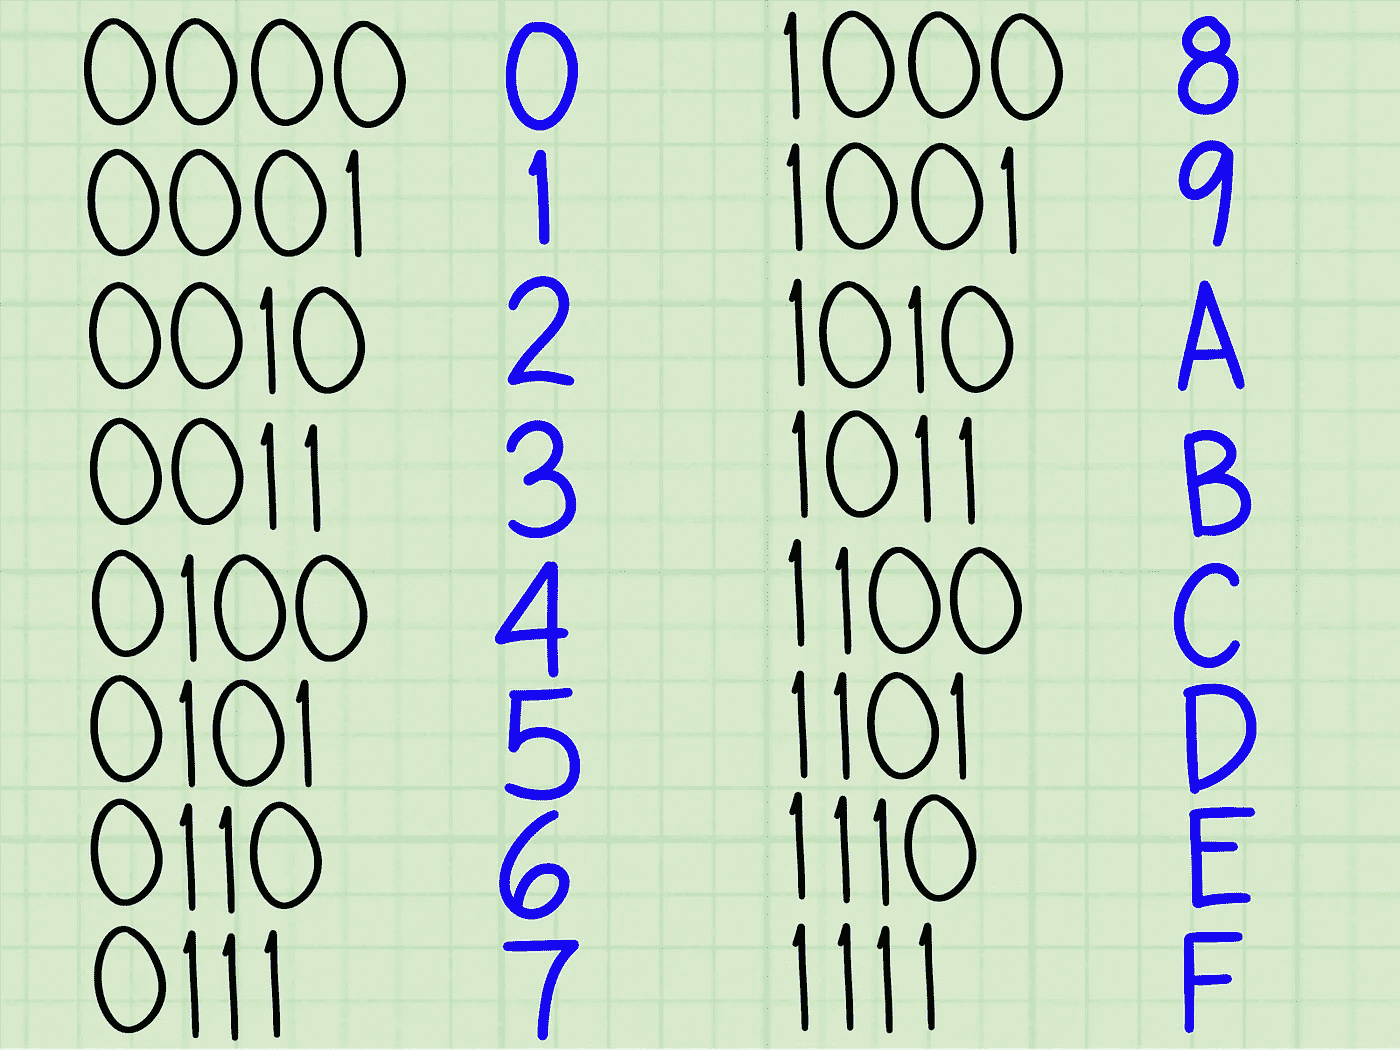 0000 0 1000 8
0001 1 1001 9
0010 2 1010 A
0011 3 1011 B
0100 4 1100 C
0101 5 1101 D
0110 6 1110 E
0111 7 1111 F